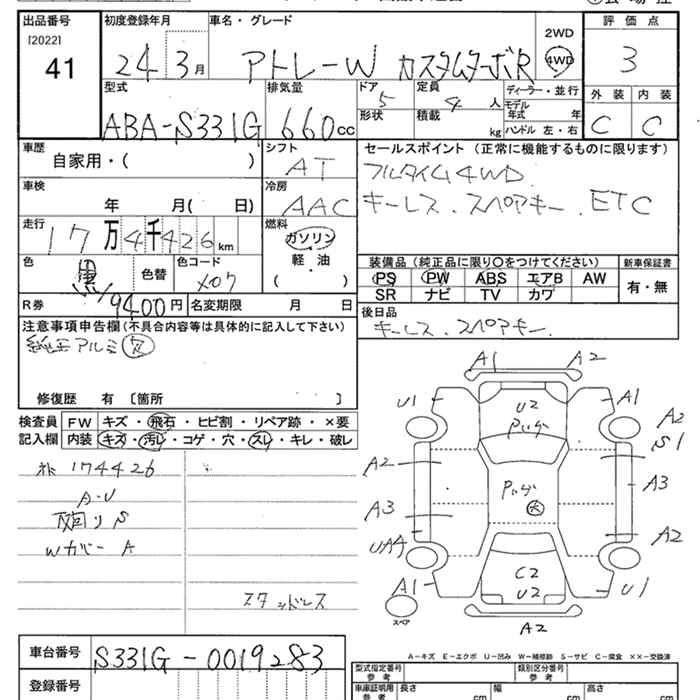 出品番号 初度登録年月 車名・グレード 2WD 4WD 評価点
[2022] 41 24年3月 アトレーW カスタムターボR 3
型式 排気量 ドア 定員 ディーラー・並行 外装 内装
ABA-S331G 660cc 5 4人 モデル年式 年 C C
形状 積載 kg ハンドル 左・右
車歴 シフト セールスポイント (正常に機能するものに限ります)
自家用・( ) AT フルタイム4WD
車検 冷房 キーレス.スペアキー.ETC
年 月( 日) AAC
走行 燃料
17万4千426km ガソリン
色 色替 色コード 軽・油 装備品 (純正品に限り○をつけてください) 新車保証書
黒 X07 ( ) PS PW ABS エアB AW 有・無
SR ナビ TV カワ
R券 9400円 名変期限 月 日 後日品
注意事項申告欄(不具合内容等は具体的に記入して下さい) キーレス.スペアキー.
純正アルミ
修復歴 有 〔箇所 〕
検査員 FW キズ・飛石・ヒビ割・リペア跡・×要
記入欄 内装 キズ・汚レ・コゲ・穴・スレ・キレ・破レ
174426
A・U
下回りS
Wカバー A
スタッドレス
A1 A2
U1 U2 A1
A2
S1
A2 A3
A3 大
UA4 A2
A1 C2 U2 U1
スペア A2
A-キズ E-エクボ U-凹み W-補修跡 S-サビ C-腐食 ××-交換済
車台番号 S331G-0019283 型式指定番号 参考 類別区分番号 参考
登録番号 車庫証明用 参考 長さ cm 幅 cm 高さ cm